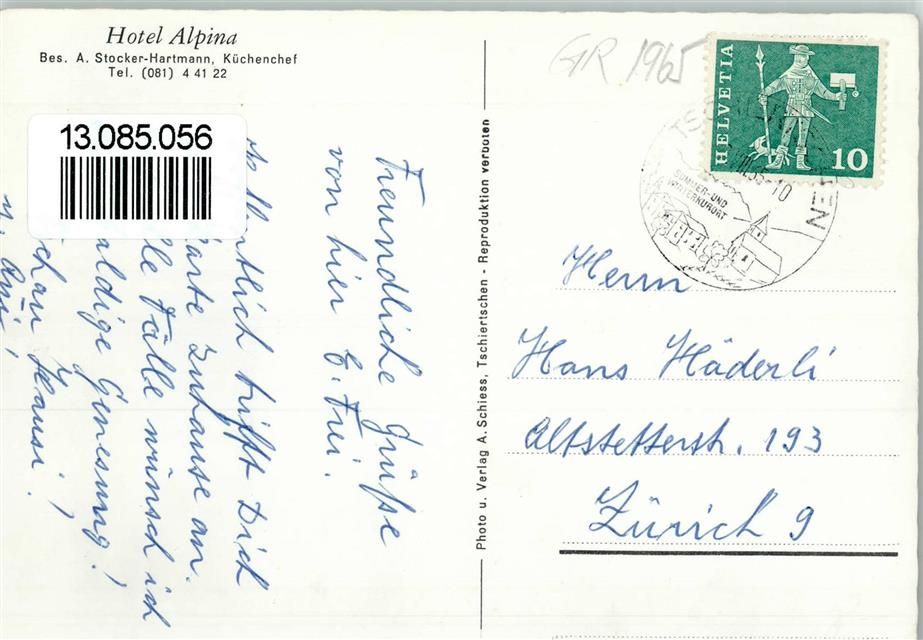 Hotel Alpina
Bes. A. Stocker-Hartmann, Küchenchef
Tel. (081) 4 41 22
13.085.056
trifft Dich
Karte zuhause an.
Fälle wünsch ich
baldige Genesung!
Hansi!
Freundliche Grüße
von hier E. Frei.
Photo u. Verlag A. Schiess, Tschiertschen - Reproduktion verboten
GR 1965
HELVETIA
10
SOMMER-UND
WINTERKURORT
Herrn
Hans Häderli
Altstetterstr. 193
Zürich 9